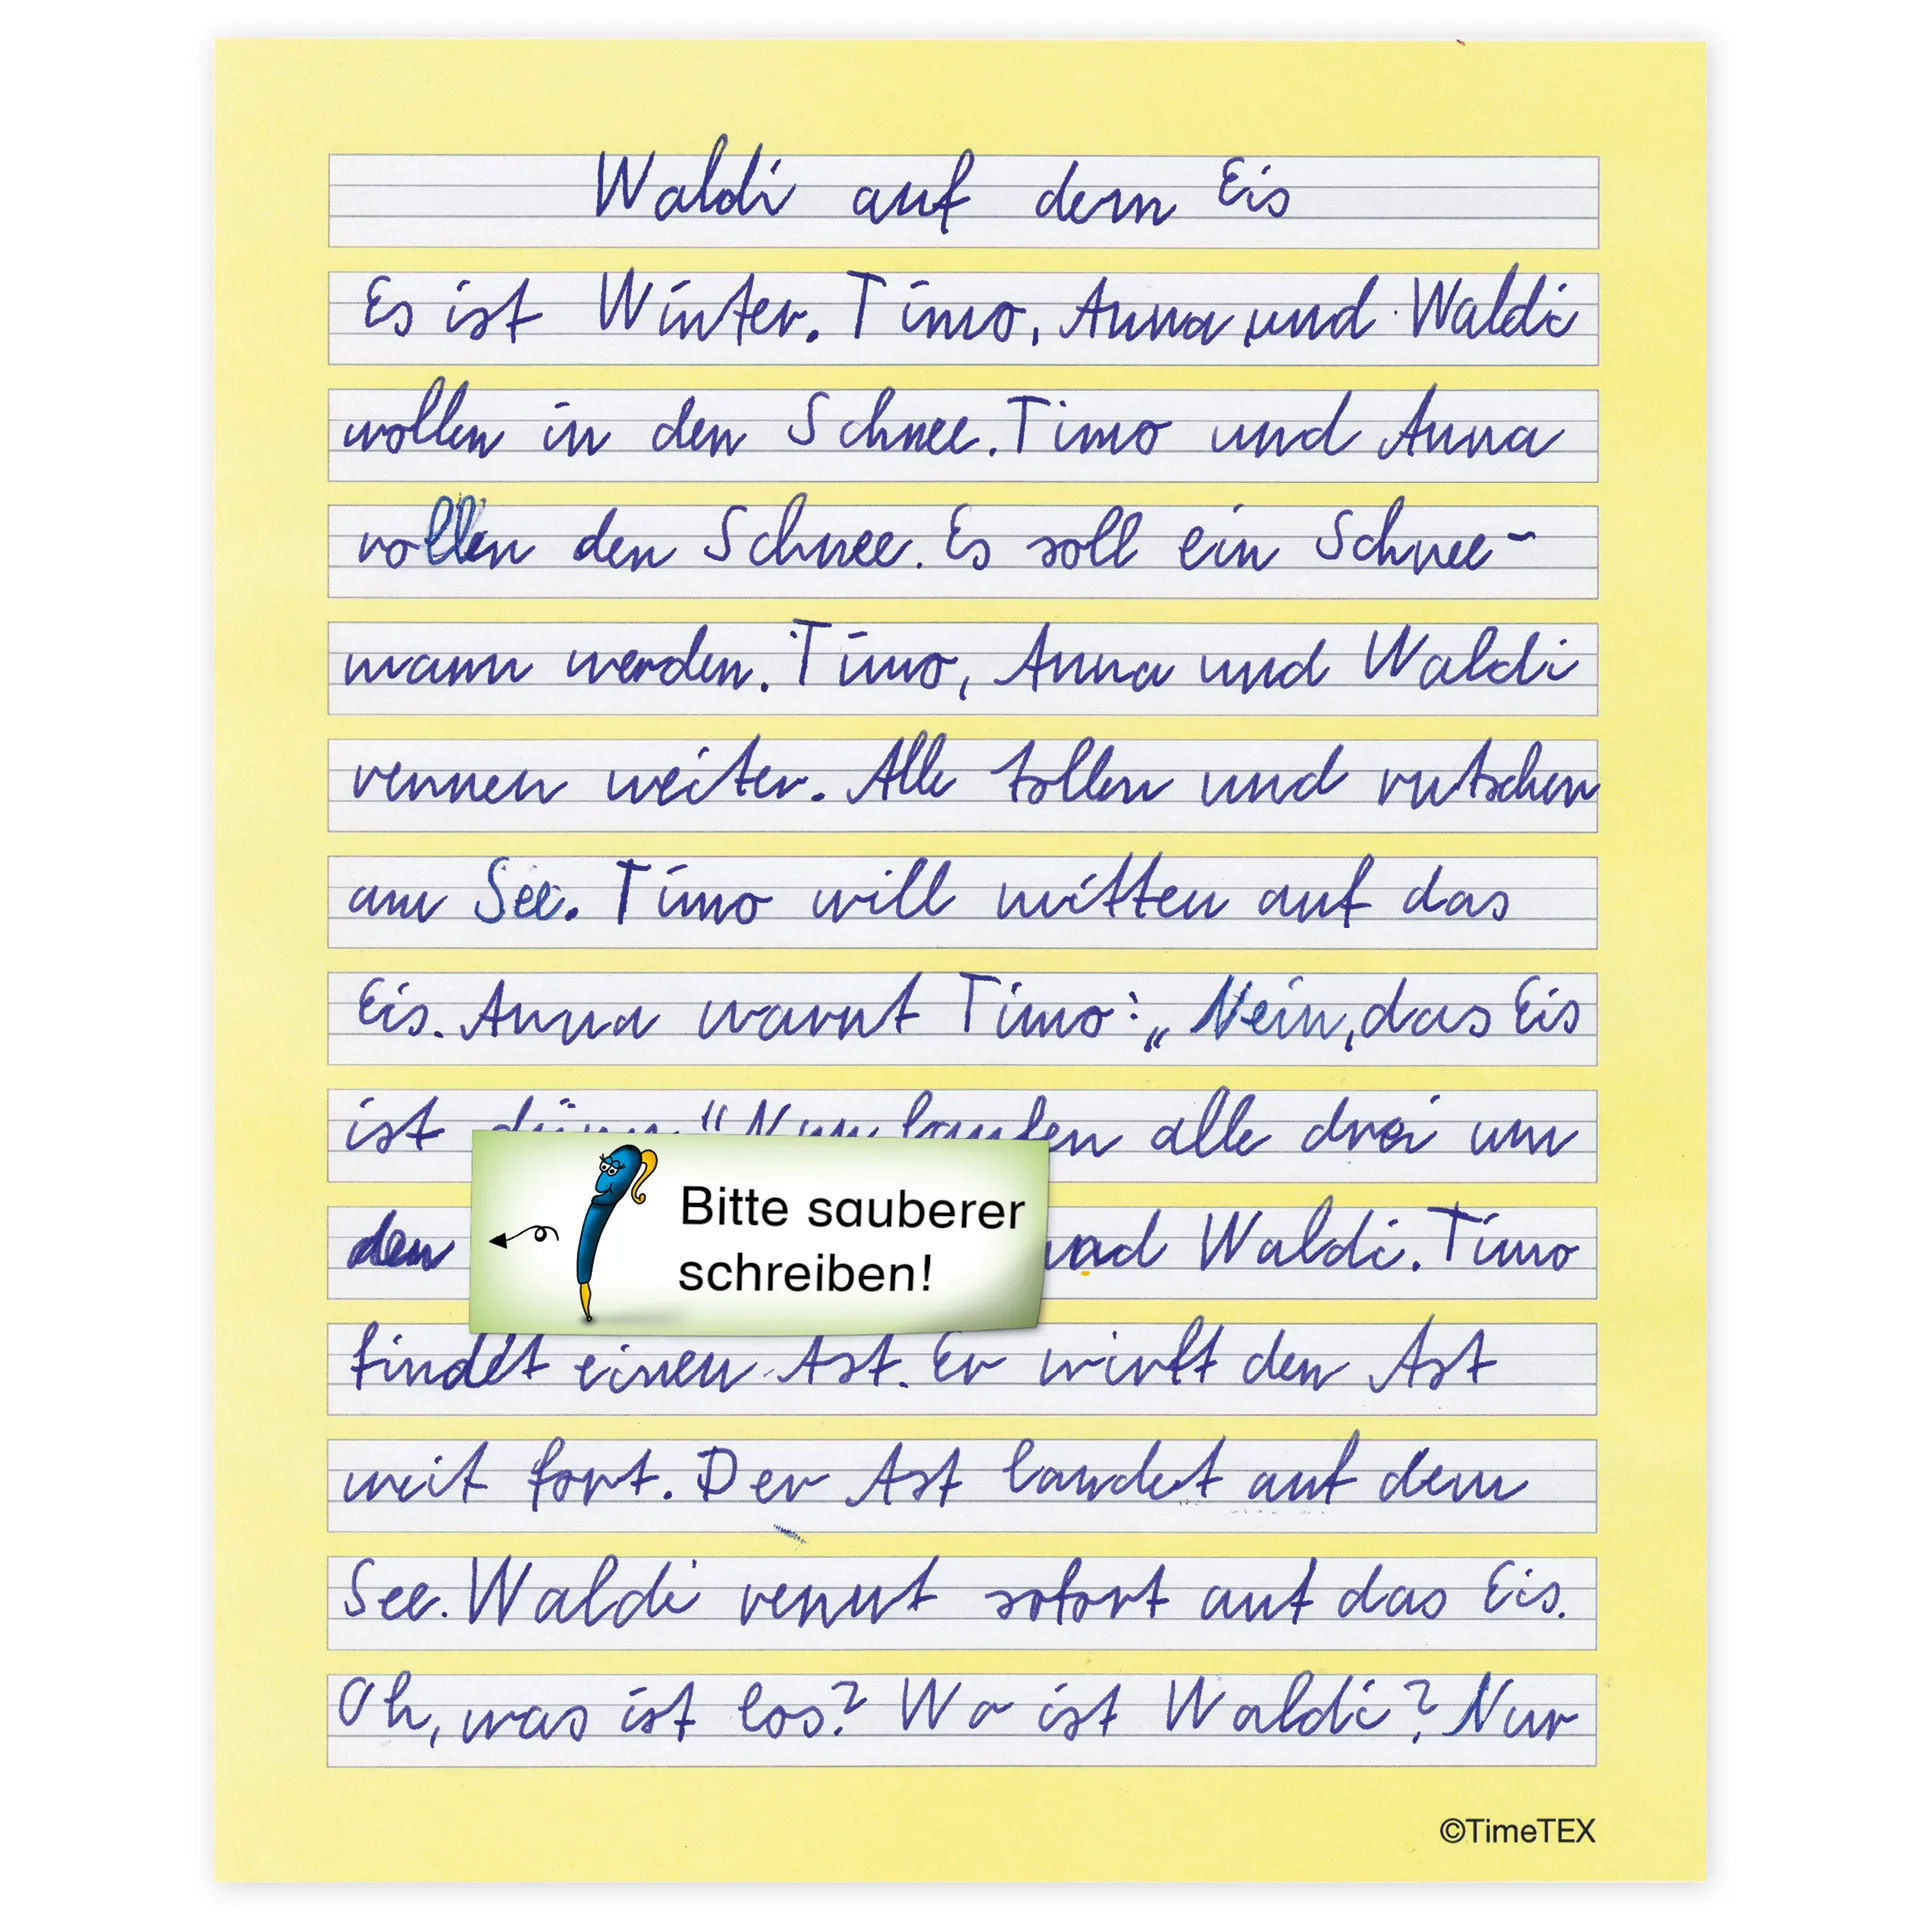 Waldi auf dem Eis
Es ist Winter. Timo, Anna und Waldi
wollen in den Schnee. Timo und Anna
rollen den Schnee. Es soll ein Schnee-
mann werden. Timo, Anna und Waldi
rennen weiter. Alle tollen und rutschen
am See. Timo will mitten auf das
Eis. Anna warnt Timo: „Nein, das Eis
ist dünn." Nun laufen alle drei um
den und Waldi. Timo
Bitte sauberer
schreiben!
findet einen Ast. Er wirft den Ast
weit fort. Der Ast landet auf dem
See. Waldi rennt sofort auf das Eis.
Oh, was ist los? Wo ist Waldi? Nur
©TimeTEX